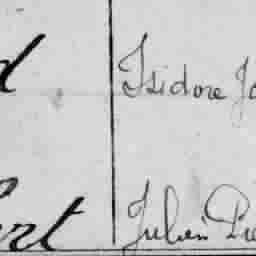 d Isidore Jo
ert Julien Pie